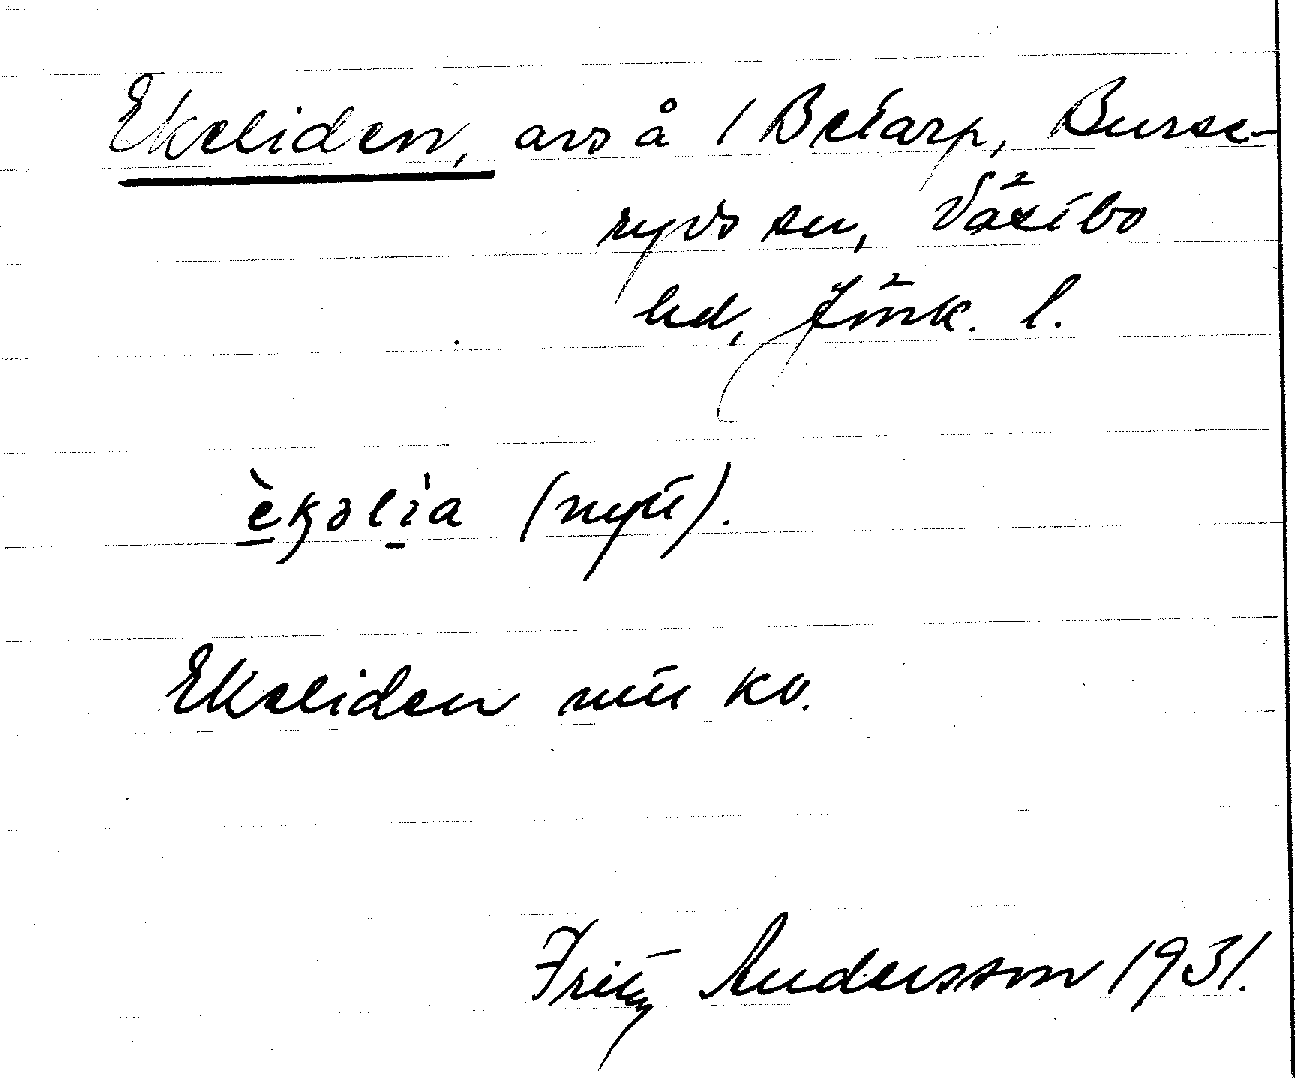 Ekeliden, avs å 1 Betarp, Burse-
ryds sn, Västbo
hd, Jönk. l.
èkəlìa (nytt).
Ekeliden mtt ko.
Fritz Andersson 1931.